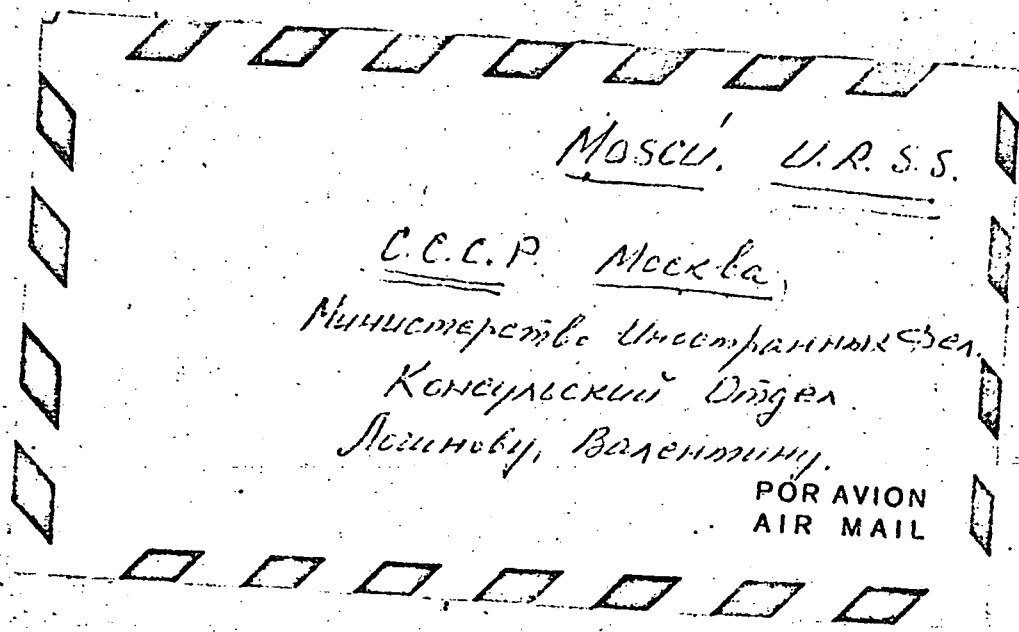 Moscú. U.R.S.S.
С.С.С.Р. Москва,
Министерство Иностранных Дел.
Консульский Отдел
Валентину.
POR AVION
AIR MAIL